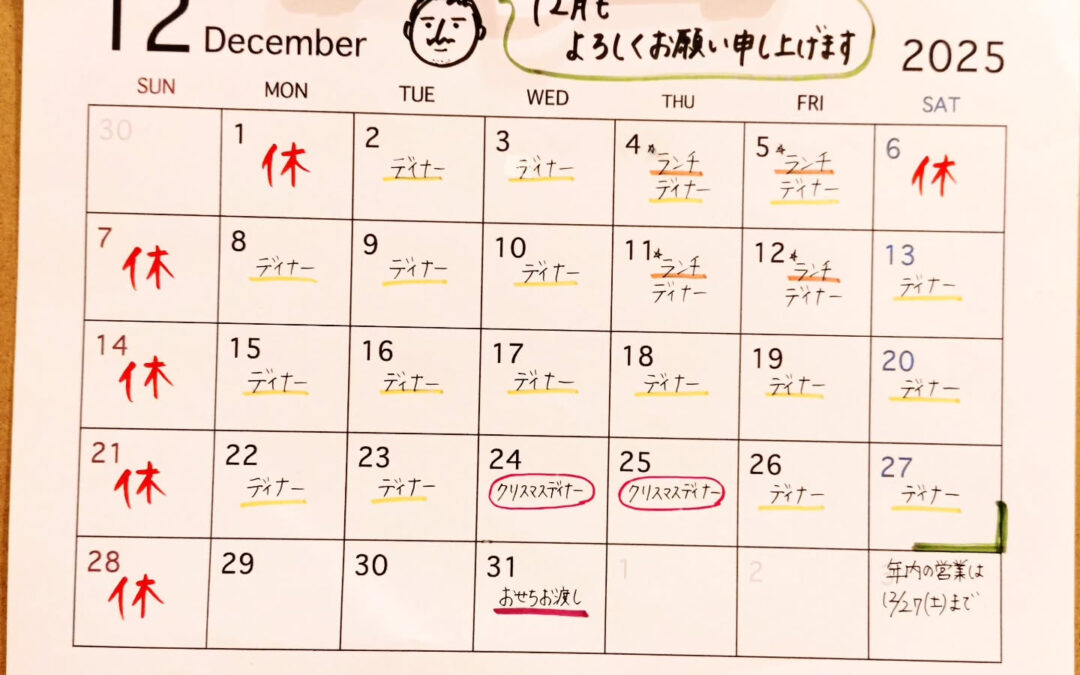 12 December
12月も
よろしくお願い申し上げます
2025
SUN MON TUE WED THU FRI SAT
30
1 休
2 ディナー
3 ディナー
4 ランチ
ディナー
5 ランチ
ディナー
6 休
7 休
8 ディナー
9 ディナー
10 ディナー
11 ランチ
ディナー
12 ランチ
ディナー
13 ディナー
14 休
15 ディナー
16 ディナー
17 ディナー
18 ディナー
19 ディナー
20 ディナー
21 休
22 ディナー
23 ディナー
24 クリスマスディナー
25 クリスマスディナー
26 ディナー
27 ディナー
28 休
29
30
31 おせちお渡し
1
2
年内の営業は
12/27(土)まで